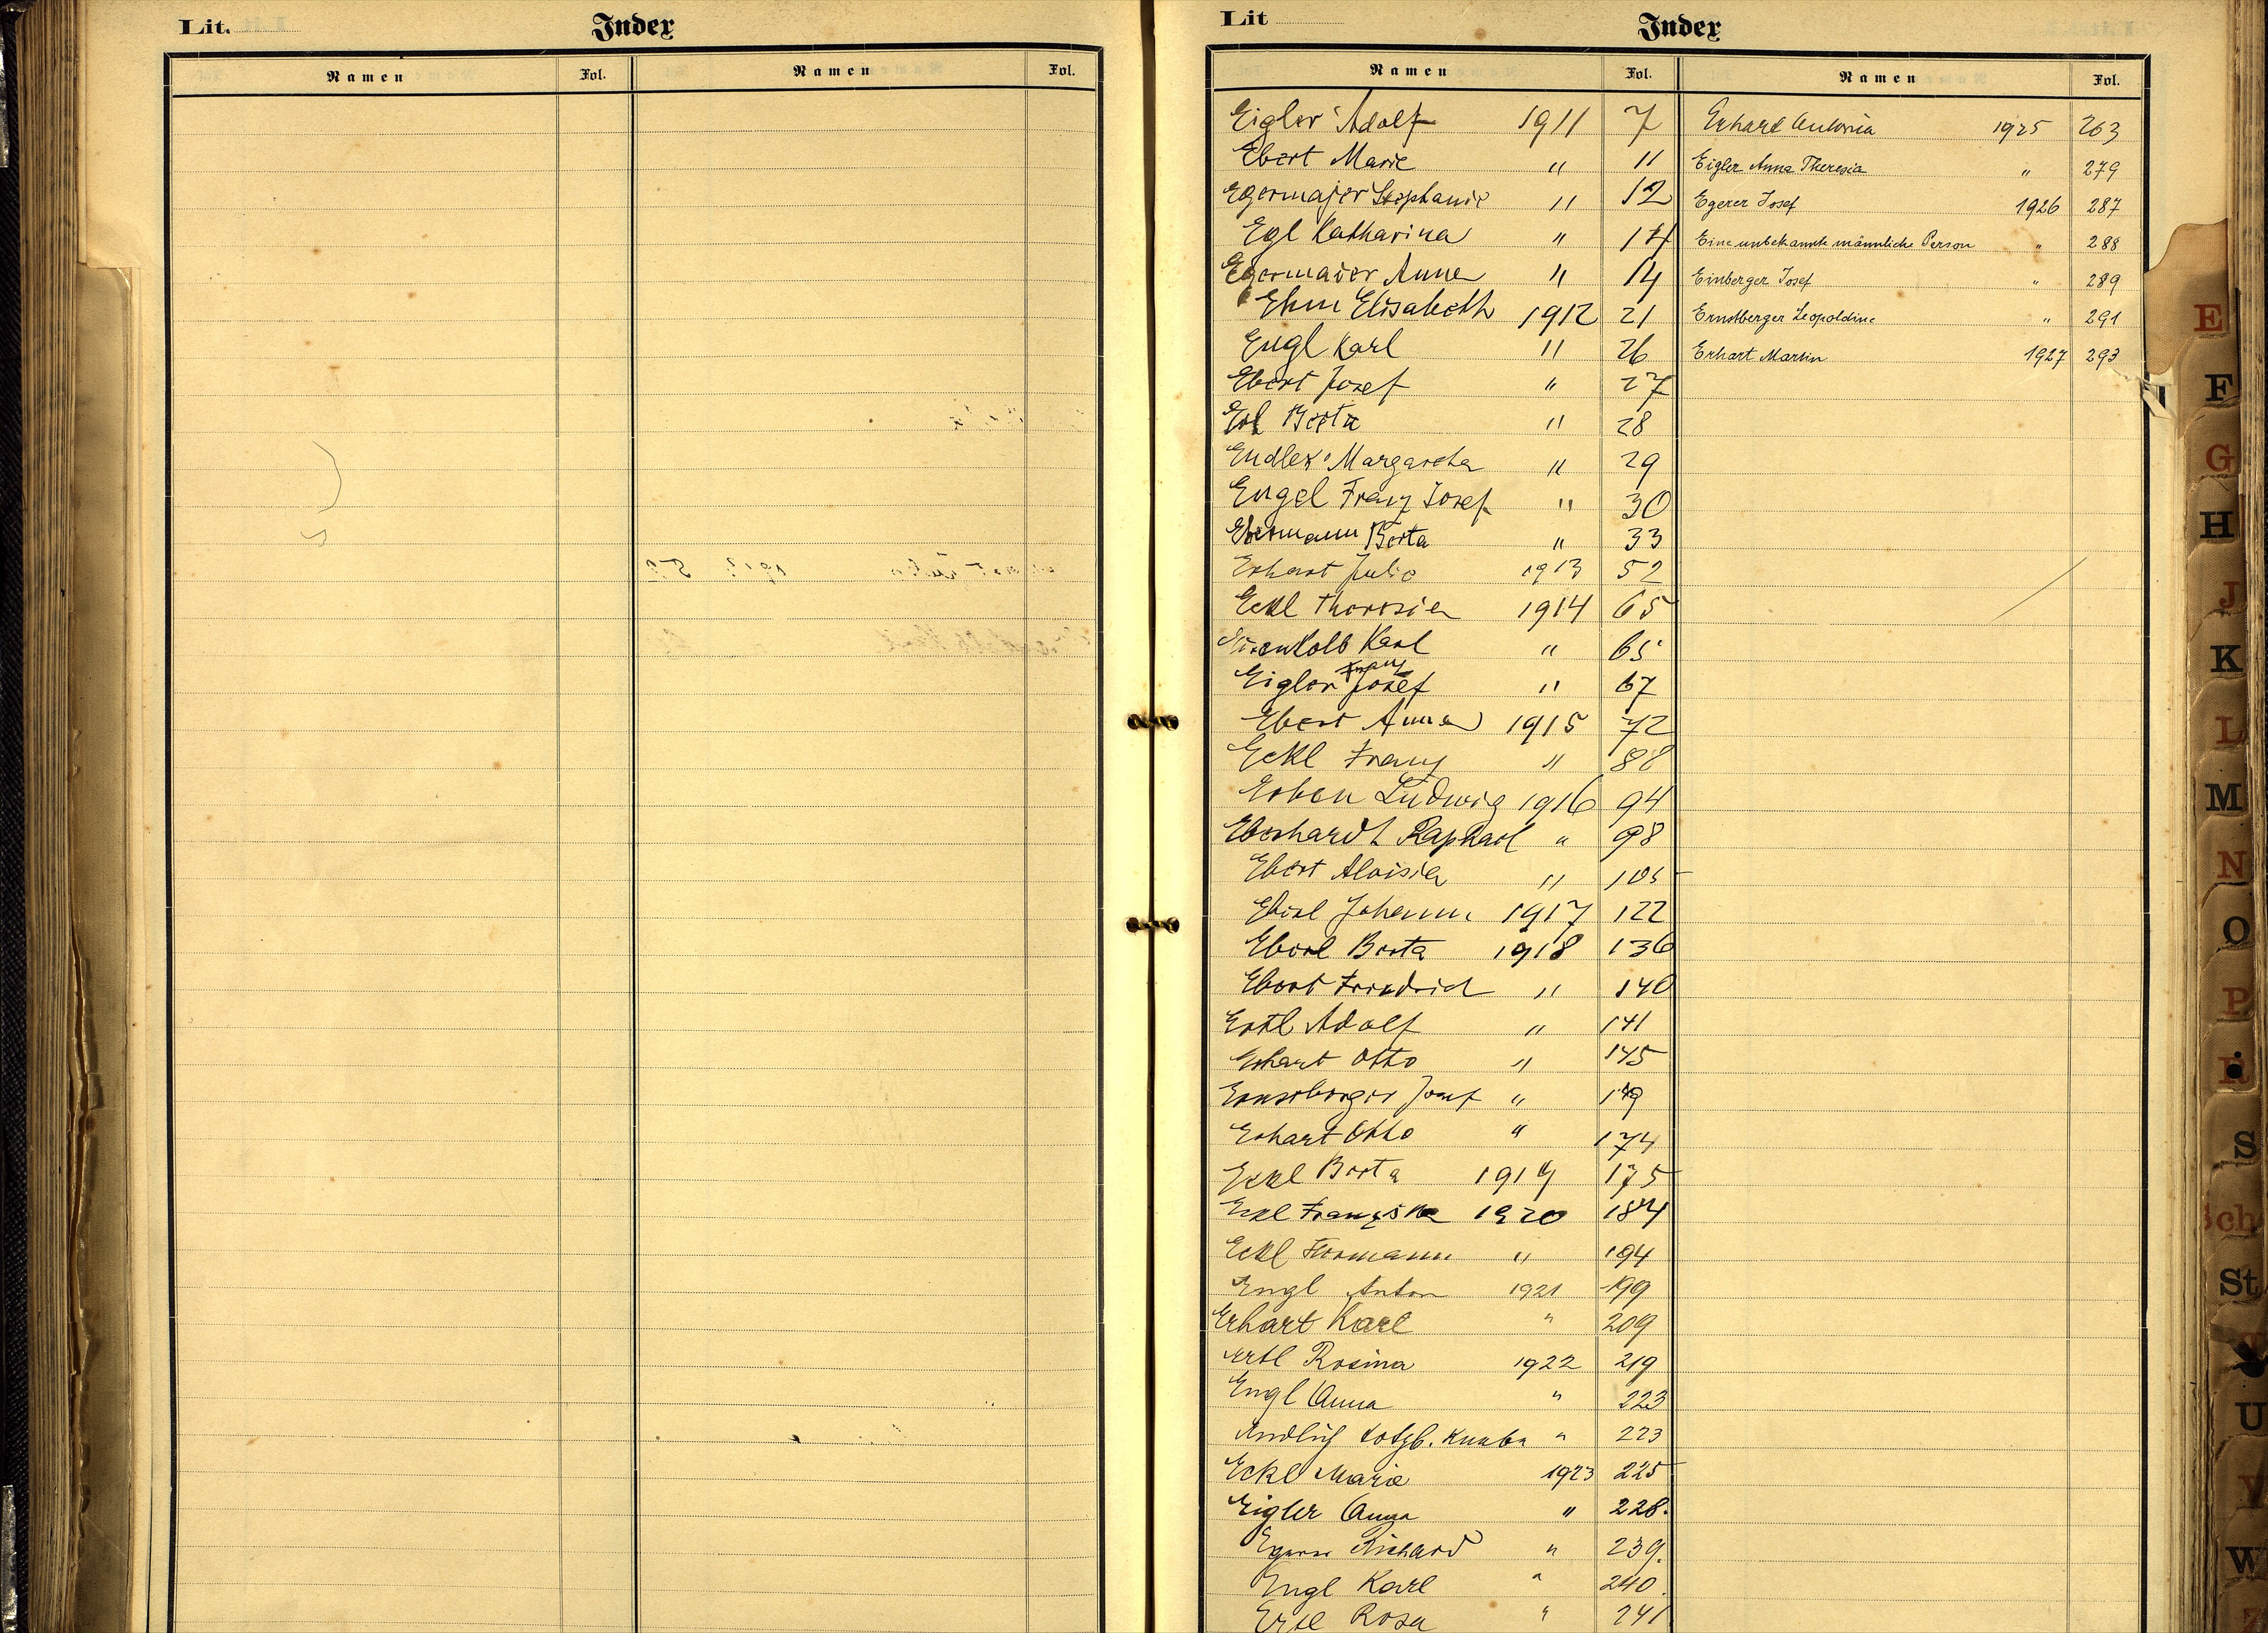 Lit.
Index
Namen Fol. Namen Fol.
Lit
Index
Namen Fol. Namen Fol.
Eigler Adolf 1911 7
Ebert Marie " 11
Egermajer Stephanie " 12
Egl Katharina " 14
Egermaier Anna " 14
Ehm Elisabeth 1912 21
Engl Karl " 26
Ebert Josef " 27
Erl Berta " 28
Endler Margaretha " 29
Engel Franz Josef " 30
Ebermann Berta " 33
Erhart Julie 1913 52
Eckl Theresia 1914 65
Eisenkolb Karl " 65
Franz
Eigler Josef " 67
Ebert Anna 1915 72
Eckl Franz " 88
Erben Ludwig 1916 94
Eberhardt Raphael "
98
Ebert Aloisia " 105
Johann 1917 122
Eberl Berta 1918 136
Ebert Friedrich " 140
Ertl Adolf " 141
Erhart Otto " 145
Ernstberger Josef "
Erhart Otto " 174
Eckl Berta 1919 175
Eckl Franziska 1920 184
Eckl Hermann " 194
Engl Anton 1921 199
Erhart Karl " 209
Ertl Rosina 1922 219
Engl Anna " 223
totgb. Knabe " 223
Eckl Marie 1923 225
Eigler Anna " 228.
Egerer Richard " 239.
Engl Karl " 240.
Ertl Rosa " 241
Erhart Antonia 1925 263
Eigler Anna Theresia " 279
Egerer Josef 1926 287
Eine unbekannte männliche Person " 288
Einberger Josef " 289
Ernstberger Leopoldine " 291
Erhart Martin 1927 293
E
F
G
H
J
K
L
M
N
O
P
R
S
Sch
St
U
V
W
Z